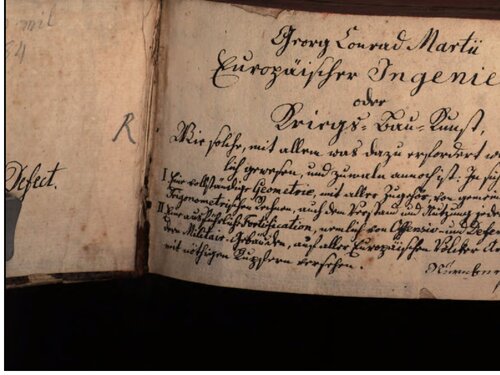 mil
4
R
Defect.
Georg Conrad Martii
Europäischer Ingenie
oder
Kriegs-Bau-Kunst,
Wie solche, mit allem was dazu erfordert w
lich gewesen, und zuweiln annoch ist. In sich
I Eine vollständige Geometrie, mit aller Zugehör, von gemein
Trigonometrischen rechen, auch dem Verstand und Nutzung
II Eine ausführliche Fortification, nemlich von Offensiv- und Defen
dern Militair-Gebäuden, auf aller Europäischen Völcker A
mit nöthigen Kupffern versehen.
Nürnberg